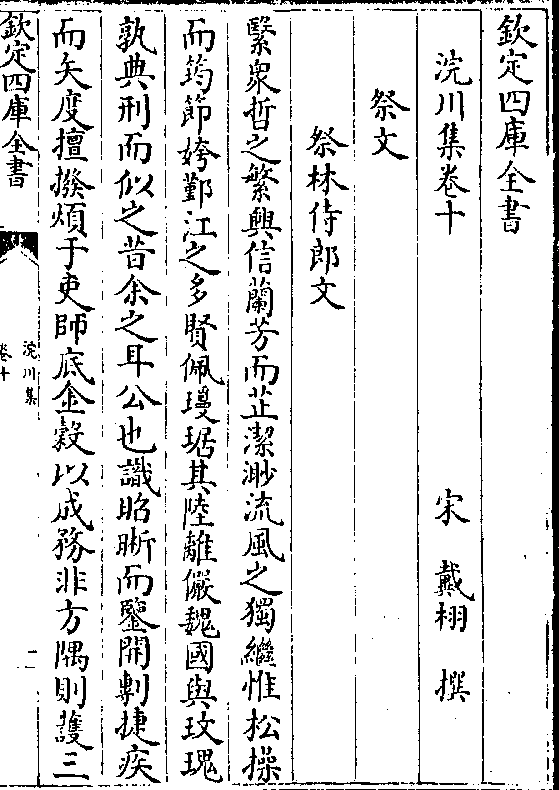 欽定四庫全書
浣川集卷十
宋　戴栩　撰
祭文
祭林侍郎文
緊衆哲之繁興信蘭芳而芷潔渺流風之獨繼惟松操
而筠節姱鄞江之多賢佩瓊琚其陸離儼魏國與玫瑰
孰典刑而似之昔余之耳公也識昭晣而鑒開剸捷疾
而矢度擅撥煩于吏師底金穀以成務非方隅則護三
欽定四庫全書
浣川集
卷十
一